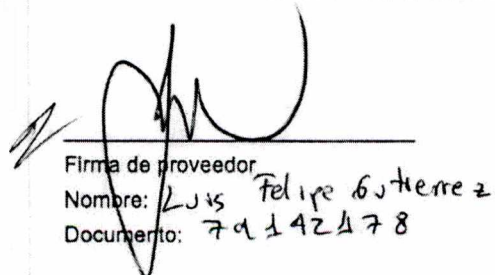 Firma de proveedor
Nombre: Luis Felipe Gutierrez
Documento: 79142178